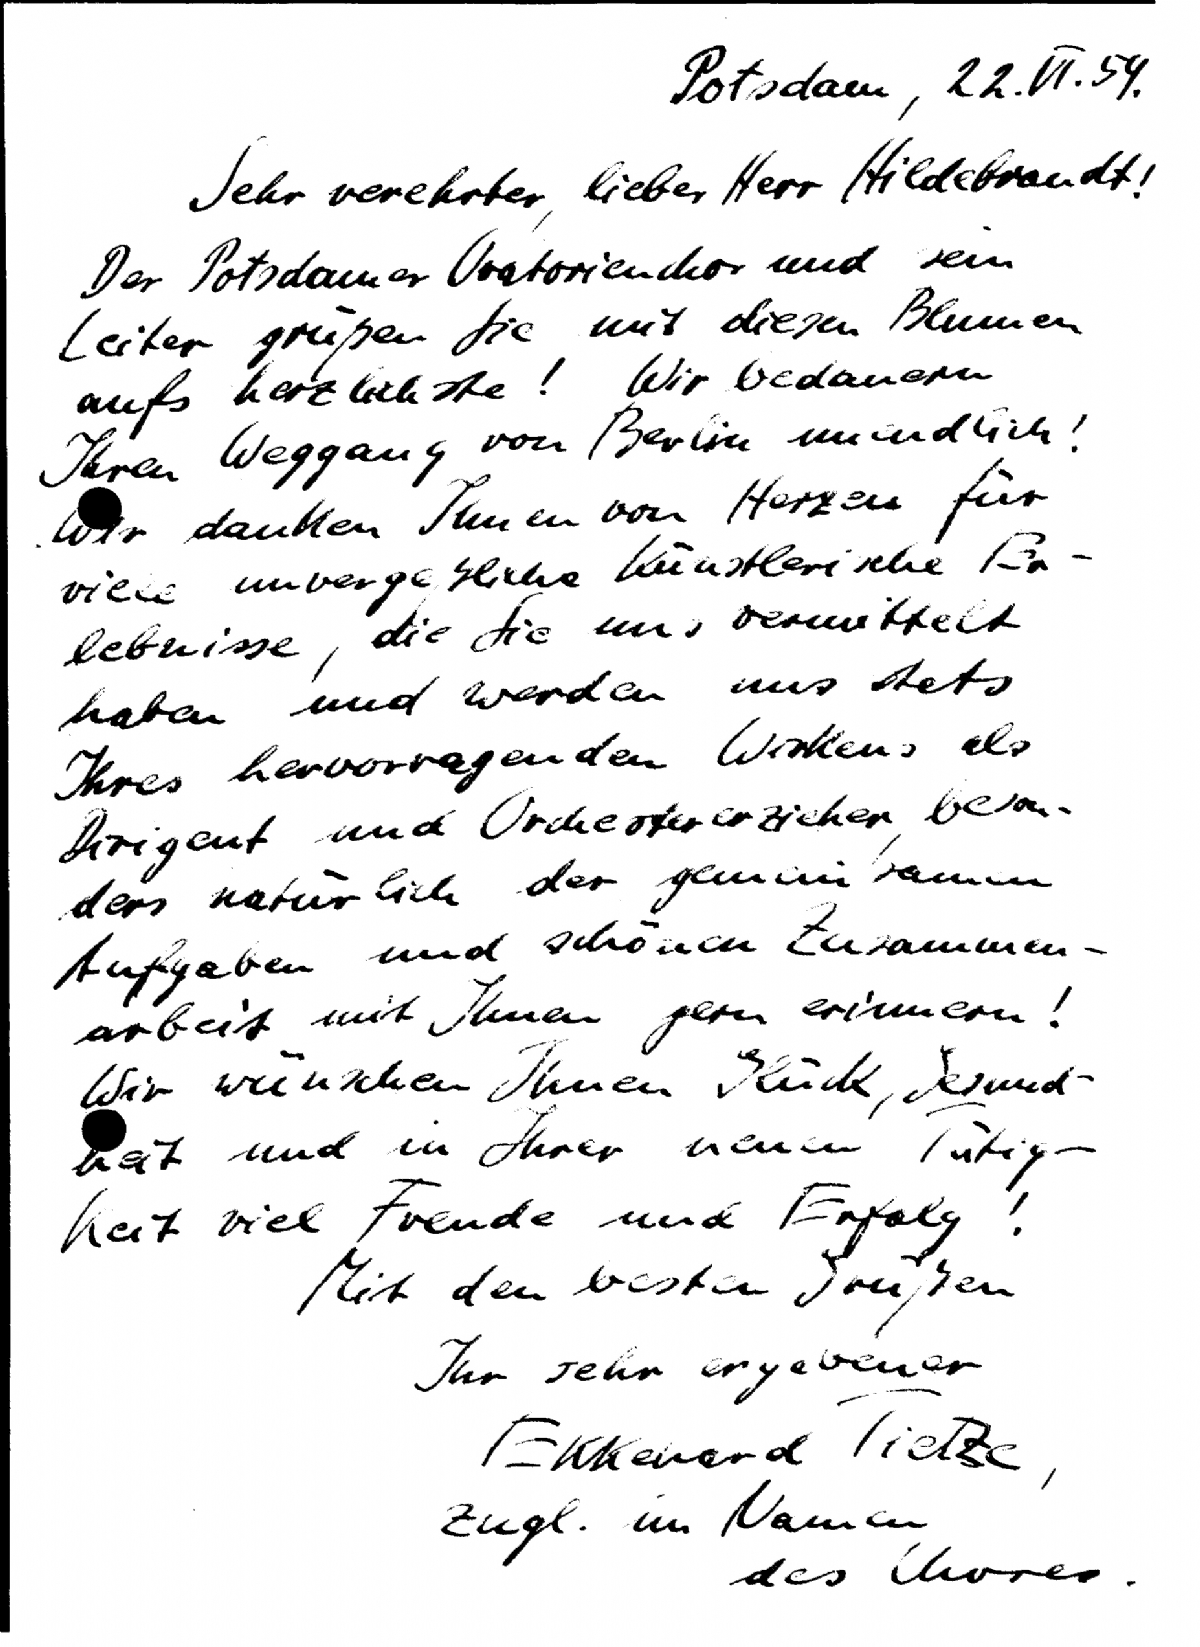 Potsdam, 22.VI.59.
Sehr verehrter, lieber Herr Hildebrandt!
Der Potsdamer Oratorienchor und sein
Leiter grüßen Sie mit diesen Blumen
aufs herzlichste! Wir bedauern
Ihren Weggang von Berlin unendlich!
Wir danken Ihnen von Herzen für
viele unvergeßliche künstlerische Er-
lebnisse, die Sie uns vermittelt
haben und werden uns stets
Ihres hervorragenden Wirkens als
Dirigent und Orchestererzieher, beson-
ders natürlich der gemeinsamen
Aufgaben und schönen Zusammen-
arbeit mit Ihnen gern erinnern!
Wir wünschen Ihnen Glück, Gesund-
heit und in Ihrer neuen Tätig-
keit viel Freude und Erfolg!
Mit den besten Grüßen
Ihr sehr ergebener
Ekkehard Tietze,
zugl. im Namen
des Chores.